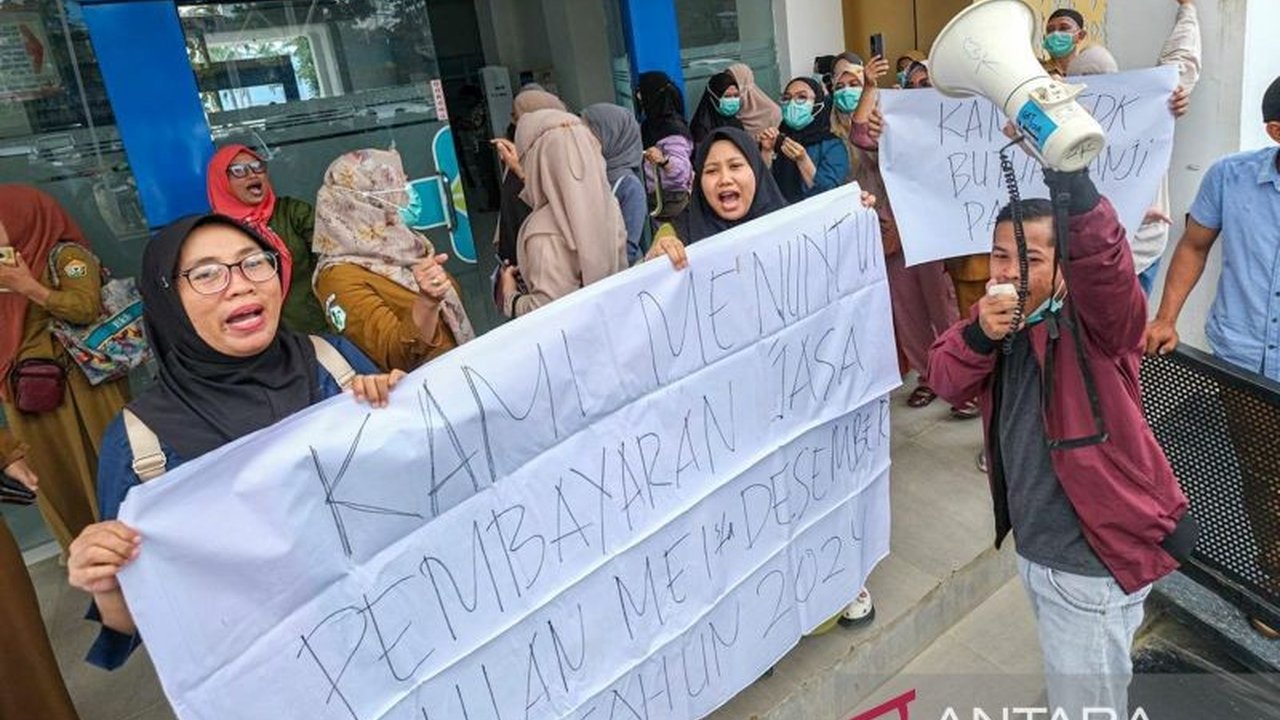 KAMI MENUNTU
PEMBAYARAN JASA
ULAN MEI s/d DESEMBER
TAHUN 2024
KAM DK
BUTU ANJI
PA
ANTARA